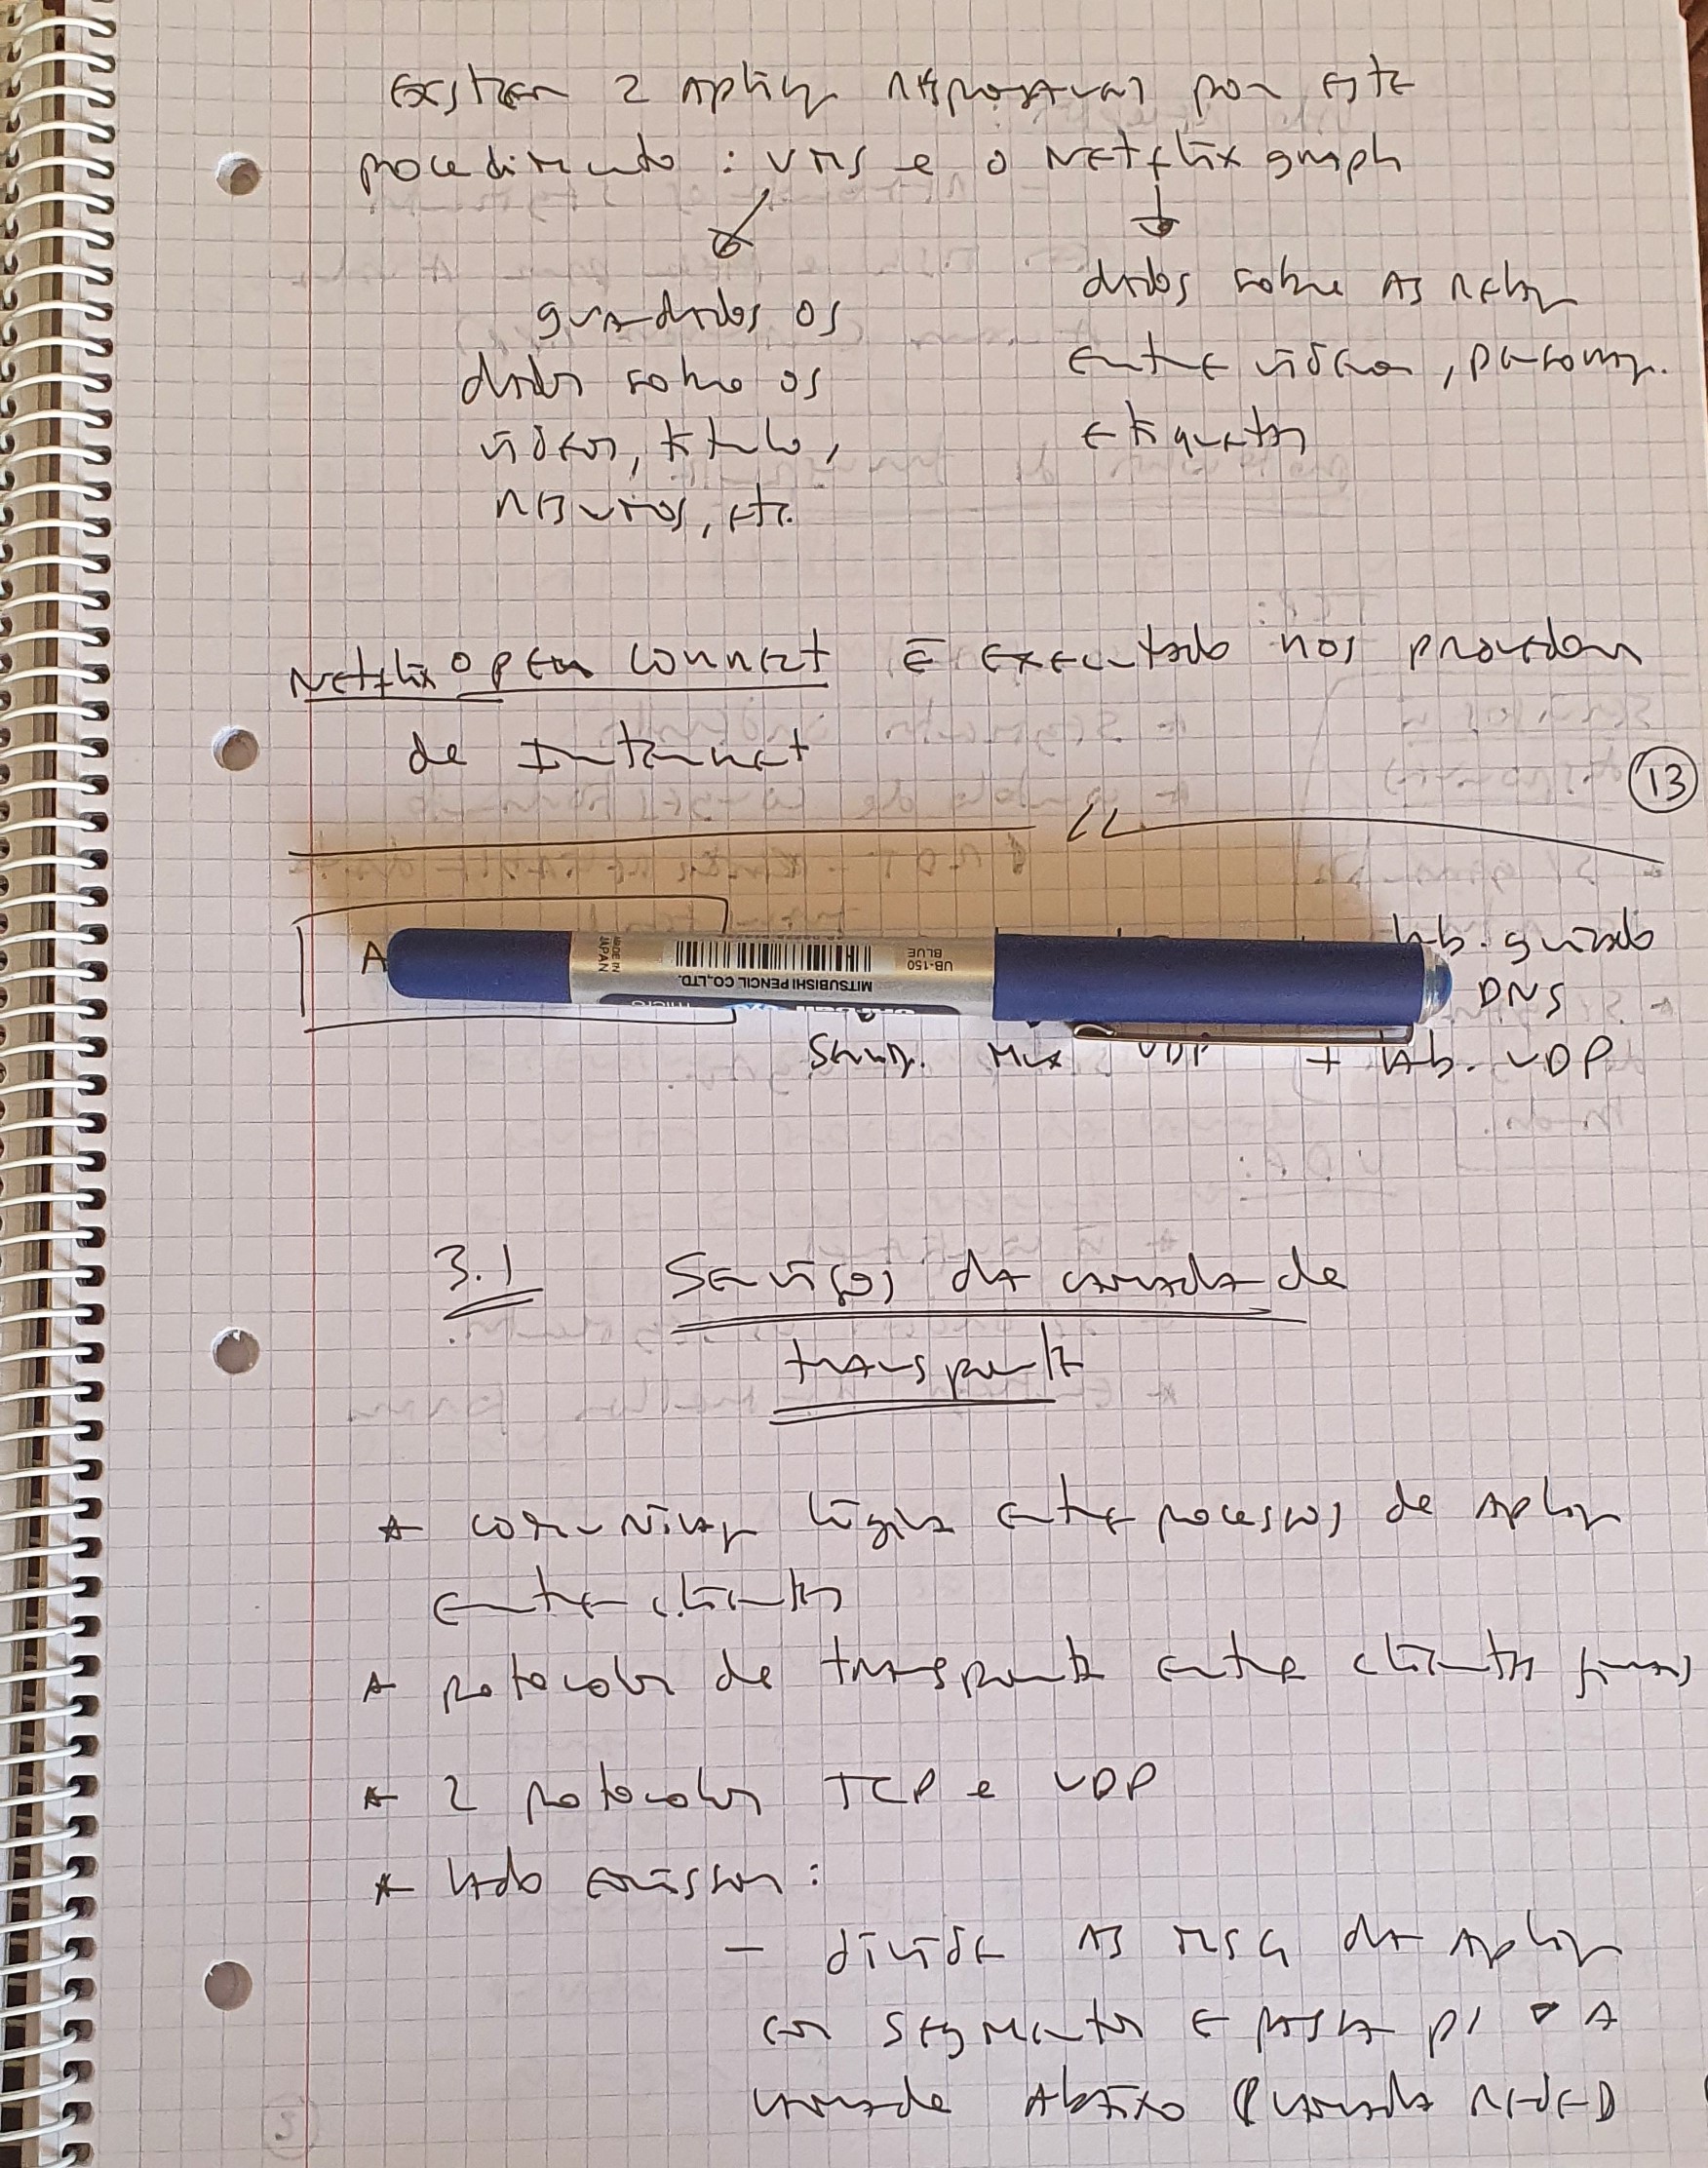 Existem 2 aplicaç responsáveis por este
procedimento : VMS e o Netflix graph
guardados os
dados sobre os
vídeos, título,
resumos, etc.
dados sobre as relaç
entre vídeos, personaz.
etiquetas
Netflix Open Connect é executado nos provedores
de Internet
13
A
Lab. guiado
DNS
Mux UDP + Lab. UDP
MADE IN
JAPAN
MITSUBISHI PENCIL CO.,LTD.
UB-150
BLUE
micro
3.1 Serviços da camada de
transporte
* comunicaç lógica entre processos de aplicaç
entre clientes
* protocolos de transporte entre clientes finais
* 2 protocolos TCP e UDP
* lado emissor :
- divide as msg da aplicaç
em segmentos e passa p/ a
camada abaixo (camada rede)